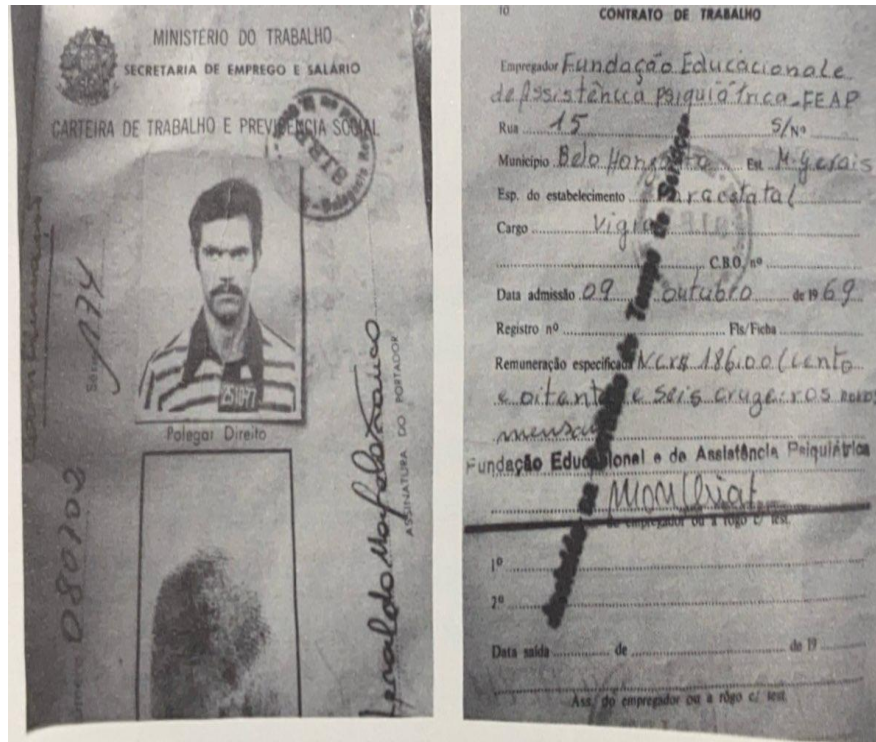 MINISTÉRIO DO TRABALHO
SECRETARIA DE EMPREGO E SALÁRIO
CARTEIRA DE TRABALHO E PREVIDÊNCIA SOCIAL
Série 174
25 10 77
Polegar Direito
080702
ASSINATURA DO PORTADOR
10
CONTRATO DE TRABALHO
Empregador Fundação Educacional e
de Assistência psiquiátrica - FEAP
Rua 15 S/Nº
Município Belo Horizonte Est. M. Gerais
Esp. do estabelecimento Paraestatal
Cargo Vigia
C.B.O. nº
Data admissão 09 outubro de 19 69
Registro nº Fls/Ficha
Remuneração especificada NCr$ 186,00 (cento
e oitenta e seis cruzeiros novos
mensais
Fundação Educacional e de Assistência Psiquiátrica
do empregador ou a rôgo c/ test.
1º
2º
Data saída de de 19
Ass. do empregador ou a rôgo c/ test.
de Tempo de Serviço